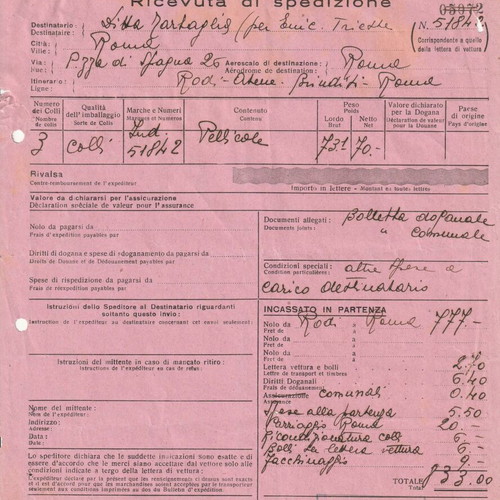 Ricevuta di spedizione
05072
Destinatario: Ditta Tartaglia (per Enic. Trieste
Destinataire:
(N. 51842)
Città: Roma
Ville:
Corrispondente a quello
della lettera di vettura
Via: P.zza di Spagna 26 Aerescalo di destinazione: Roma
Rue: Aérodrome de destination:
Itinerario: Rodi - Atene - Brindisi - Roma
Ligne:
Numero dei Colli Qualità dell'imballaggio Marche e Numeri Contenuto Peso Valore dichiarato per la Dogana Paese di origine
Nombre de Colis Sorte de Colis Marques et Numéros Contenu Poids Déclaration de valeur pour la Douane Pays d'origine
Lordo Netto
Brut Net
3 Colli Ind. 51842 Pellicole 73.1 70.-
Rivalsa
Contre-remboursement de l'expéditeur
Importo in lettere - Montant en toutes lettres
Valore da dichiararsi per l'assicurazione
Déclaration spéciale de valeur pour l'assurance
Documenti allegati: Bolletta doganale
Documents joints: " Comunale
Nolo da pagarsi da
Frais d'expédition payables par
Diritti di dogana e spese di sdoganamento da pagarsi da
Droits de Douane et de Dédouanement payables par
Condizioni speciali: altre spese a
Condition particulières: carico destinatario
Spese di rispedizione da pagarsi da
Frais de réexpédition payables par
Istruzioni dello Speditore al Destinatario riguardanti
soltanto questo invio:
Instruction de l'expéditeur au destinataire concernant cet envoi seulement:
INCASSATO IN PARTENZA
Nolo da Rodi a Roma 777.-
Fret de a
Nolo da a
Fret de a
Nolo da a
Fret de a
Lettera vettura e bolli 2.70
Lettre de transport et timbres
Diritti Doganali 6.40
Frais de Douane
Assicurazione comunali 0.40
Assurance
Spese alla partenza 5.50
Carriaggio Roma 20.-
Ricondizionatura colli 6.-
Boll. La lettera vettura 6.-
Facchinaggio 9.-
TOTALE 833.00
TOTAL
Istrazioni del mittente in caso di mancato ritiro:
Instructions de l'expéditeur en cas de refus:
Nome del mittente:
Nom de l'expéditeur:
Indirizzo:
Adresse:
Data:
Date:
Lo speditore dichiara che le suddette indicazioni sono esatte e di
essere d'accordo che le merci siano accettate dal vettore solo alle
condizioni indicate a tergo della lettera di vettura.
L'expéditeur déclare par le présent que les renseignements ci-dessus sont exacts
et est d'accord que les marchandises sont acceptées par le transporteur
seulement aux conditions imprimées au dos du Bulletin d'Expédition.